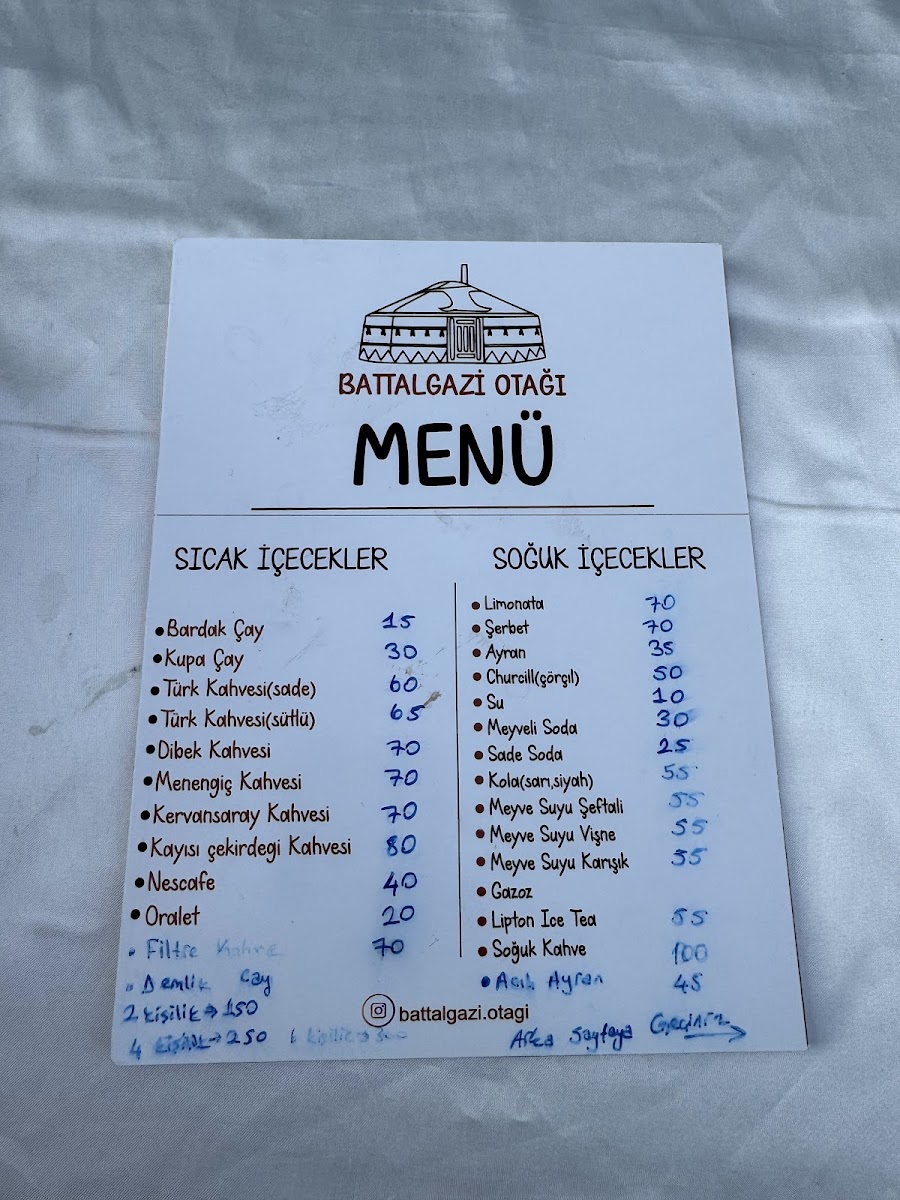 BATTALGAZİ OTAĞI
MENÜ
SICAK İÇECEKLER
•Bardak Çay 15
•Kupa Çay 30
•Türk Kahvesi(sade) 60
•Türk Kahvesi(sütlü) 65
•Dibek Kahvesi 70
•Menengiç Kahvesi 70
•Kervansaray Kahvesi 70
•Kayısı çekirdegi Kahvesi 80
•Nescafe 40
•Oralet 20
• Filtre Kahve 70
• Demlik Çay
2 kişilik→150
4 kişilik→250 6 kişilik→300
SOĞUK İÇECEKLER
•Limonata 70
•Şerbet 70
•Ayran 35
•Churcill(çörçıl) 50
•Su 10
•Meyveli Soda 30
•Sade Soda 25
•Kola(sarı,siyah) 55
•Meyve Suyu Şeftali 55
•Meyve Suyu Vişne 55
•Meyve Suyu Karışık 55
•Gazoz
•Lipton Ice Tea 55
•Soğuk Kahve 100
•Açık Ayran 45
battalgazi.otagi
Arka Sayfaya Geçiniz→